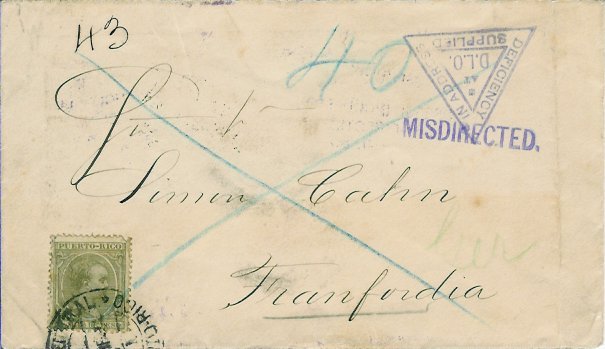 43
40
DEFICIENCY IN ADDRESS
SUPPLIED
AT
D.L.O.
MISDIRECTED.
Simon Cahn
Ger
Franfordia
PUERTO-RICO